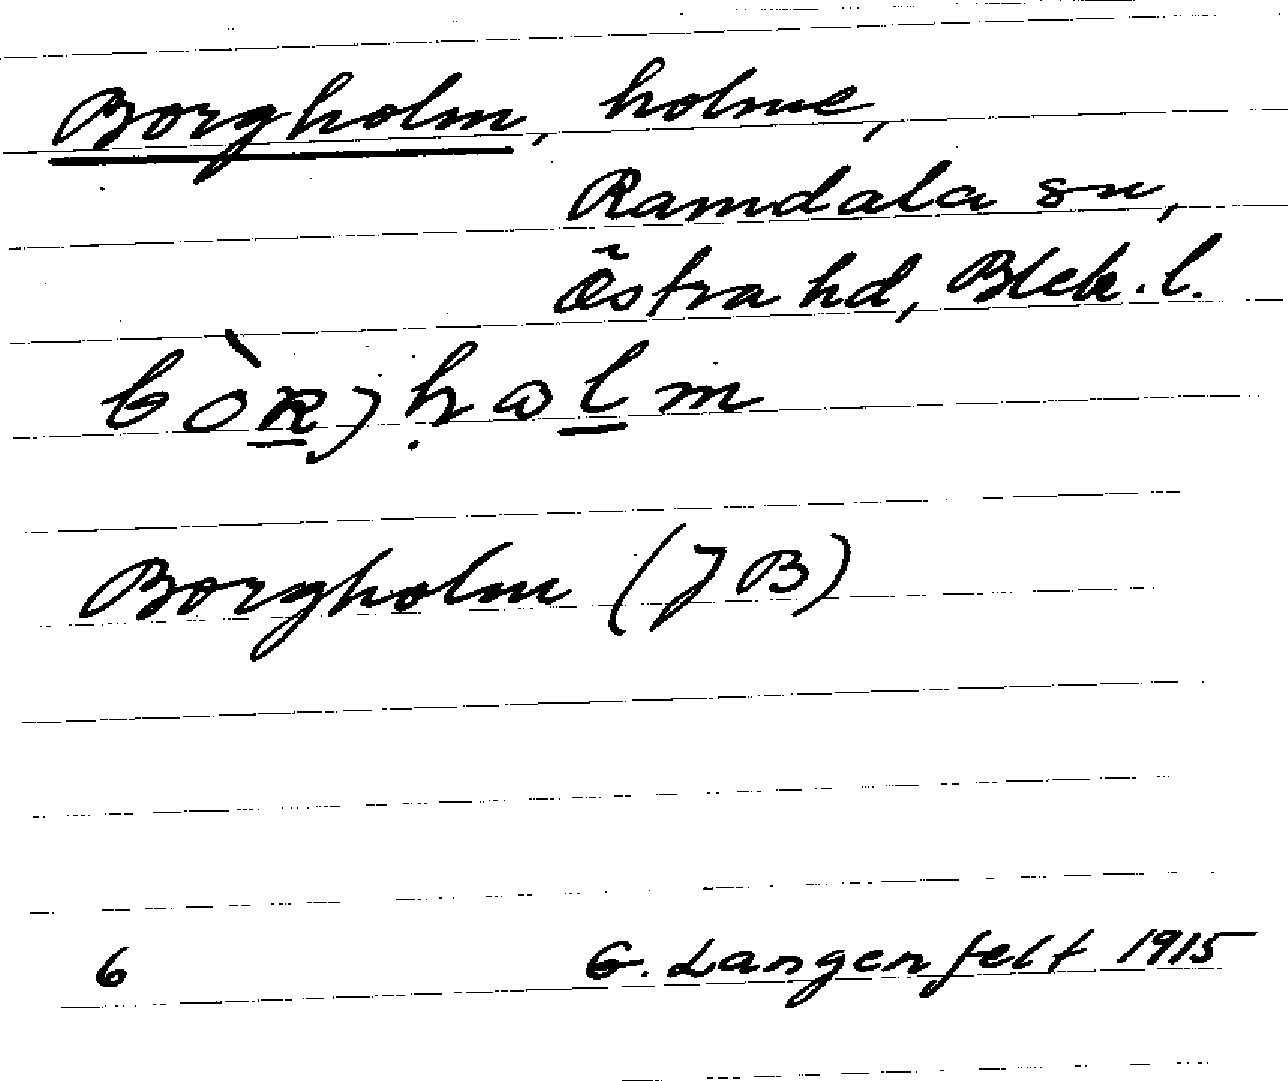 Borgholm, holme,
Ramdala sn,
Östra hd, Blek. l.
Borgholm (JB)
6 G. Langenfelt 1915